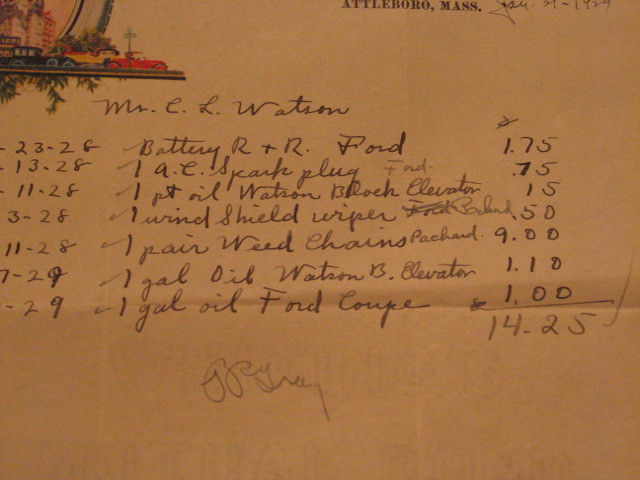 ATTLEBORO, MASS. Jan. 21-1929
Mr. C. L. Watson
- 23-28 Battery R + R. Ford 1.75
- 13-28 1 A.C. Spark plug Ford. .75
- 11-28 1 pt oil Watson Block Elevator 15
3-28 1 wind Shield wiper Ford Packard 50
11-28 1 pair Weed Chains Packard. 9.00
7-29 1 gal Oil Watson B. Elevator 1.10
-29 1 gal oil Ford Coupe 1.00
14-25
Gray